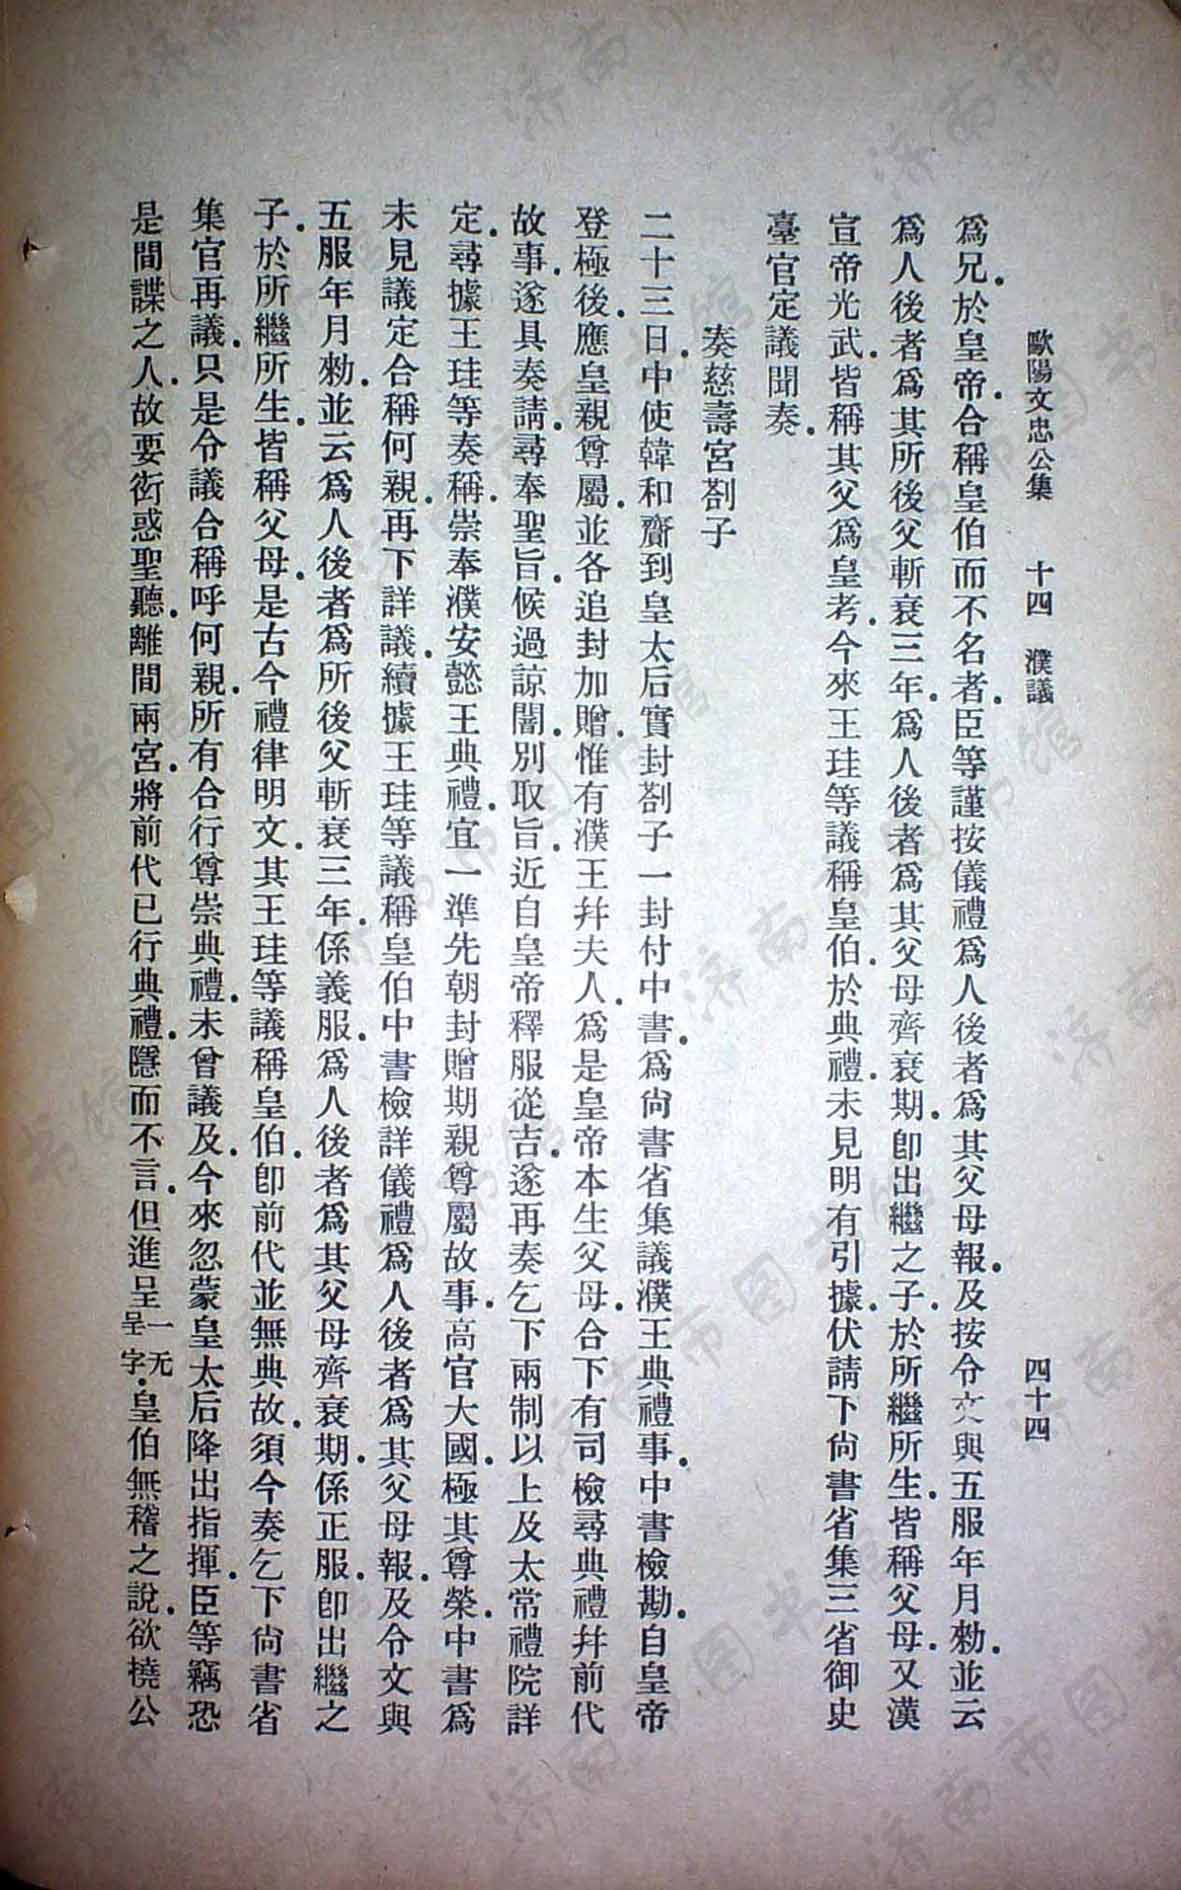 歐陽文忠公集　十四　濮議　四十四
爲兄．於皇帝．合稱皇伯而不名者．臣等謹按儀禮爲人後者爲其父母報．及按令文與五服年月勑．並云
爲人後者爲其所後父斬衰三年．爲人後者爲其父母齊衰期．卽出繼之子．於所繼所生．皆稱父母．又漢
宣帝光武．皆稱其父爲皇考．今來王珪等議稱皇伯．於典禮．未見明有引據．伏請下尙書省集三省御史
臺官定議聞奏．
奏慈壽宮劄子
二十三日．中使韓和齎到皇太后實封劄子一封付中書．爲尙書省集議濮王典禮事．中書檢勘．自皇帝
登極後．應皇親尊屬．並各追封加贈．惟有濮王幷夫人．爲是皇帝本生父母．合下有司檢尋典禮幷前代
故事．遂具奏請．尋奉聖旨．候過諒闇．別取旨．近自皇帝釋服從吉．遂再奏乞下兩制以上及太常禮院詳
定．尋據王珪等奏稱．崇奉濮安懿王典禮．宜一準先朝封贈期親尊屬故事．高官大國．極其尊榮．中書爲
未見議定合稱何親．再下詳議．續據王珪等議稱皇伯中書檢詳儀禮爲人後者爲其父母報．及令文與
五服年月勑．並云爲人後者爲所後父斬衰三年．係義服．爲人後者爲其父母齊衰期．係正服．卽出繼之
子．於所繼所生．皆稱父母．是古今禮律明文．其王珪等議稱皇伯．卽前代並無典故．須今奏乞下尙書省
集官再議．只是令議合稱呼何親．所有合行尊崇典禮．未曾議及．今來忽蒙皇太后降出指揮．臣等竊恐
是間諜之人．故要衒惑聖聽．離間兩宮．將前代已行典禮．隱而不言．但進呈一无呈字．皇伯無稽之說．欲撓公